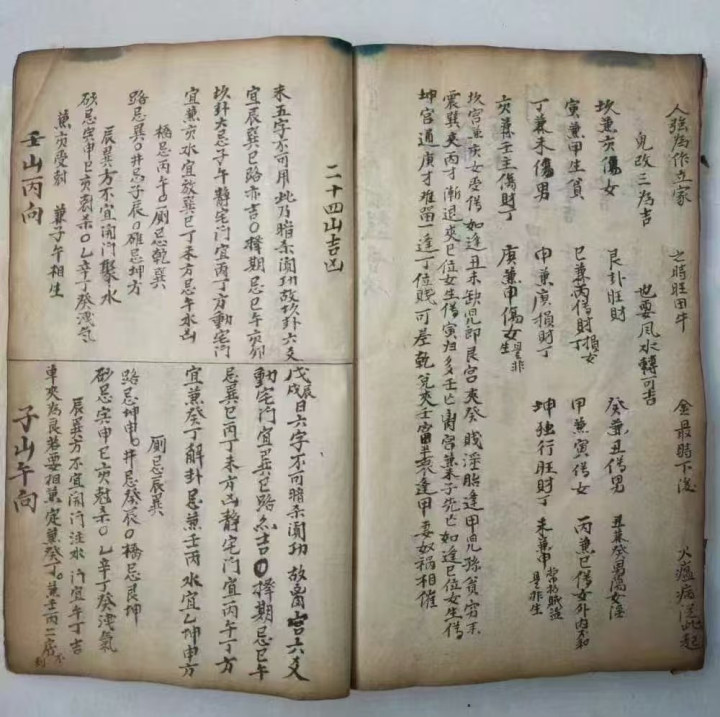 人強為作立家 之時旺田牛 金最時下後 火瘟病從此起
兒改三為吉 也要風水轉可吉
坎兼亥傷女 艮卦旺財 癸兼丑傷男 丑兼癸男傷女淫
寅兼甲生貧 巳兼丙傷財丁損女 甲兼寅傷女 丙兼巳傷女外內不和
丁兼未傷男 申兼庚損財丁 坤独行旺財丁 未兼申
亥兼壬主傷財丁 庚兼申傷女生是非
坎宮兼亥女受傷 如逢丑未缺兒郎 艮宮夾癸賤淫胎 逢甲兒孫貧窮來
震巽夾丙才漸退 夾巳位女生傷 寅归多壬亡 离宮兼未子死亡 如逢巳位女生傷
坤宮通庚才难留 一逢丁位賤可差 乾兌夾壬富 逢甲妻奴禍相催
二十四山吉凶
未五字不可用此乃暗杀闻功故坎卦六爻
宜辰巽巳路亦吉〇擇期忌巳午亥卯
坎卦大忌子午 静宅门宜丙丁方動宅门
宜兼亥水宜放巽巳丁未方忌午水凶
橋忌丙午〇厠忌乾巽
路忌巽〇井忌子辰〇碓忌坤方
砂忌寅申巳亥刼杀〇乙辛丁癸浅气
辰巽方不宜開门聚水
兼亥受尅 兼子午相生
壬山丙向
戊辰戌日六字不可暗杀闻功 故离宮六爻
動宅门宜巽巳路亦吉〇擇期忌巳午
忌巽巳丙丁未方凶静宅门宜丙午丁方
宜兼癸丁解卦忌兼壬丙水宜乙坤申方
厠忌辰巽
路忌坤申〇井忌癸辰〇橋忌艮坤
砂忌寅申巳亥尅杀〇乙辛丁癸浅氣
辰巽方不宜開门注水 门宜午丁吉
單夾為良若要相兼定兼癸丁〇兼壬丙二度不利
子山午向